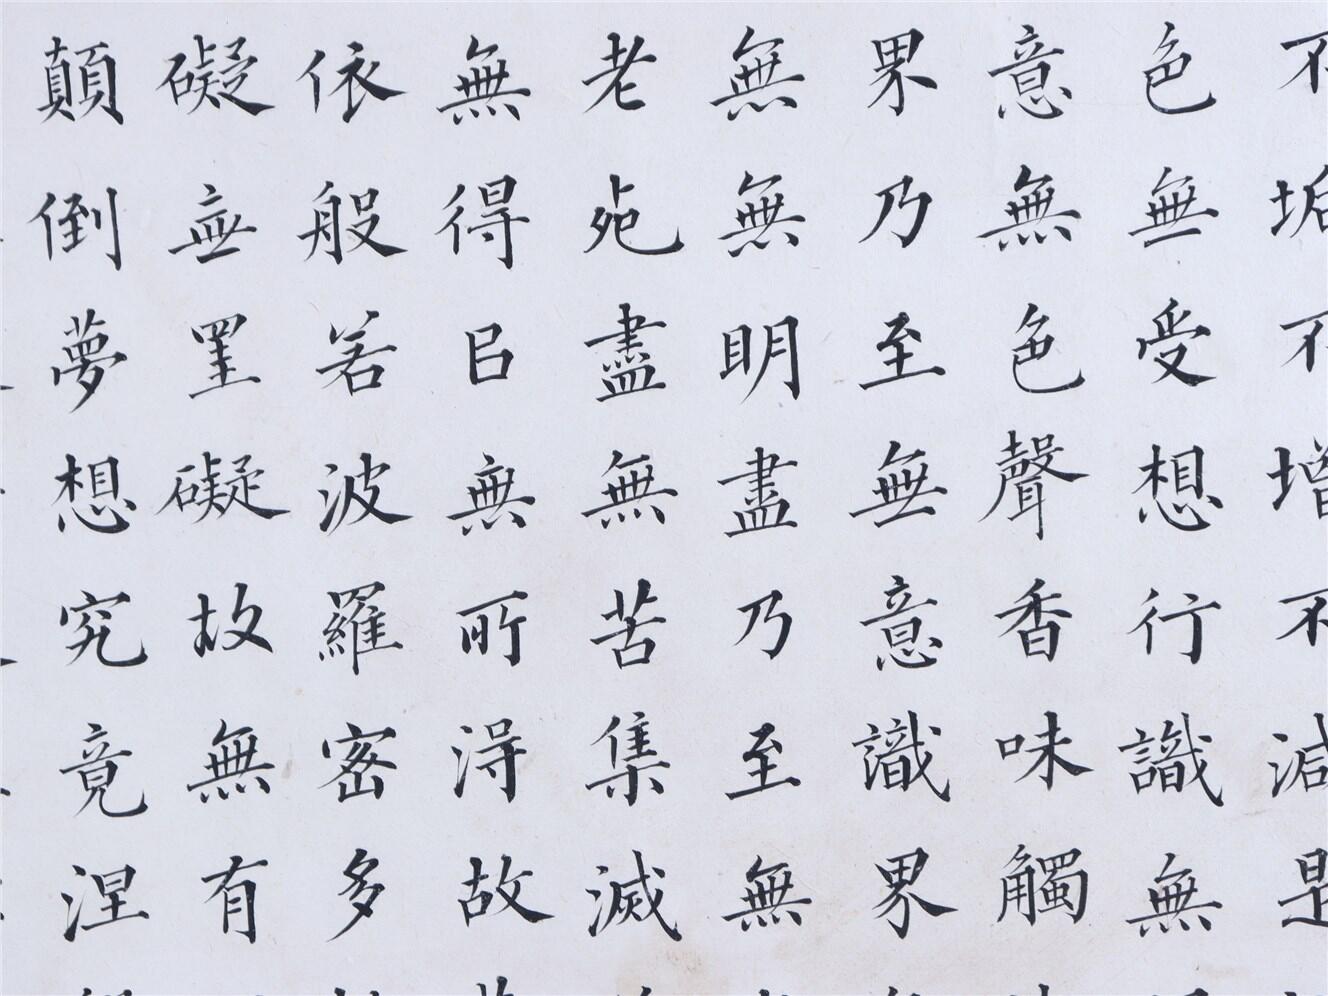 不垢不增不減是
色無受想行識無
意無色聲香味觸
界乃至無意識界
無無明盡乃至無
老死盡無苦集滅
無得以無所得故
依般若波羅蜜多
礙無罣礙故無有
顛倒夢想究竟涅